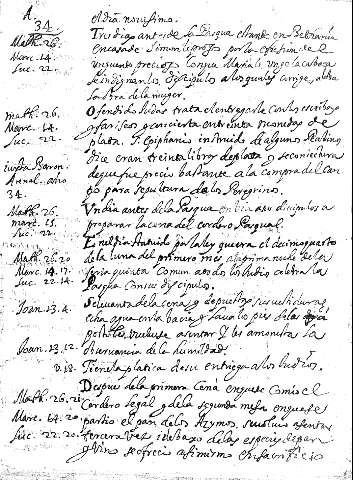 A
34.
el dia novissimo.
Math. 26.
Marc. 14.
Luc. 22.
Tres dias antes de la Pasqua estando en Bethania
en casa de Simon leproso por la efusion de el
unguento precioso con que Maria le unge la cabeça
se indignan los discipulos a los quales corrige, alaba
la obra de la muger.
Math. 26.
Marc. 14.
Luc. 22.
Ofendido Judas trata el entregarle con los escribas
y fariseos y concierta en treinta monedas de
plata. S. Epiphanio instruido de algunos
dice eran treinta libras de plata y se conietura
de que fue precio bastante a la compra del cam
po para sepultura de los Peregrinos.
iuxta Baron.
Annal. año
34.
Math. 26.
marc. 15.
Luc. 22.
Un dia antes de la Pasqua embia dos discipulos a
preparar la cena del cordero Pasqual.
Math. 26.20
Marc. 14.17.
Luc. 22.14.
En el dia por la ley que era el decimoquarto
de la luna del primero mes a la prima noche de la
feria quinta Comun a todos los Judios celebra la
Pascha con sus discipulos.
Joan. 13.4.
Levanta de la cena, y depuestas sus vestiduras
echa agua en la bacia y lava los pies de los
postoles, vuelvese a sentar y les amonesta la
Joan. 13.12.
observancia de la humildad.
v. 18.
Tiene platica de su entrega a los Judios.
Math. 26.21.
Marc. 14.20.
Luc. 22.20.
Despues de la primera cena en que se comio el
Cordero legal, y de la segunda mesa en que se
partio el pan de los Azymos, se volvio a sentar
tercera vez i debaxo de las especies de pan
y vino se ofrecio a si mismo en sacrificio